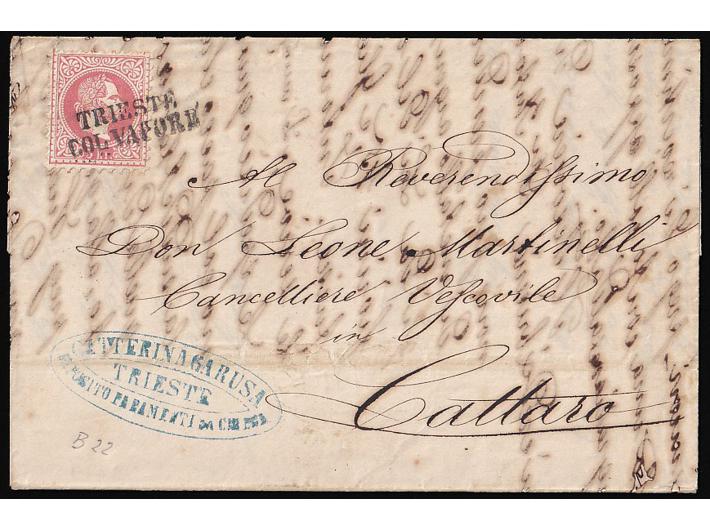 TRIESTE
COL VAPORE
Al Reverendissimo
Don Leone Martinelli
Cancelliere Vescovile
in
Cattaro
CATTERINA GARUSA
TRIESTE
DEPOSITO PARAMENTI DA CHIESA
B 22